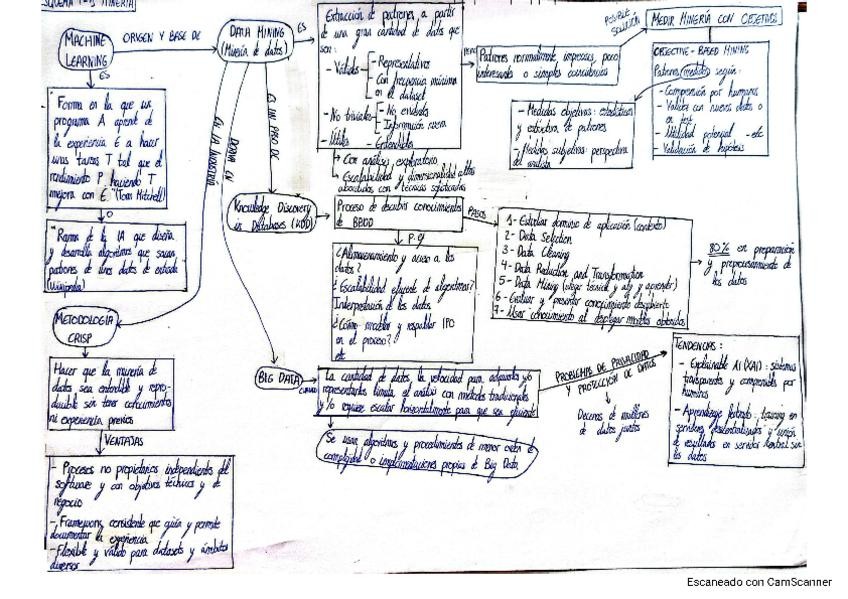 SQUEMA T-1 MINERÍA
MACHINE
LEARNING
ORIGEN Y BASE DE
DATA MINING
(Minería de datos)
ES
Extracción de patrones a partir
de una gran cantidad de datos que
son:
- Válidos
- Representativos
- Con frecuencia mínima
en el dataset
- No triviales
- No evidentes
- Información nueva
- Útiles
- Entendibles
PERO
Patrones normalmente, imprecisos, poco
interesantes o simples coincidencias
POSIBLE
SOLUCIÓN
MEDIR MINERÍA CON OBJETIVOS
OBJECTIVE - BASED MINING
Patrones medidos según:
- Comprensión por humanos
- Validez con nuevos datos o
en test
- Utilidad potencial - etc
- Validación de hipótesis
- Medidas objetivas: estadísticas
y estructura de patrones
- Medidas subjetivas: perspectiva
del analista
ES
Forma en la que un
programa A aprende de
la experiencia E a hacer
unas tareas T tal que el
rendimiento P haciendo T
mejora con E. (Tom Mitchell)
O
"Rama de la IA que diseña
y desarrolla algoritmos que sacan
patrones de unos datos de entrada
(Wikipedia)
EN LA INDUSTRIA
DERIVA EN
ES UN PASO DE
Con análisis exploratorio
Escalabilidad y dimensionalidad altas
abordados con técnicas sofisticadas
Knowledge Discovery
in Databases (KDD)
Proceso de descubrir conocimientos
de BBDD
PASOS
1- Estudiar dominio de aplicación (contexto)
2- Data Selection
3- Data Cleaning
4- Data Reduction and Transformation
5- Data Mining (elegir técnica y alg y aprender)
6- Evaluar y presentar conocimiento descubierto
7- Usar conocimiento al desplegar modelos obtenidos
80% en preparación
y preprocesamiento de
los datos
P. ej
¿Almacenamiento y acceso a los
datos?
¿Escalabilidad eficiente de algoritmos?
Interpretación de los datos
¿Cómo modelar y respaldar IPO
en el proceso?
etc
METODOLOGÍA
CRISP
Hacer que la minería de
datos sea entendible y repro-
ducible sin tener conocimientos
ni experiencia previos
VENTAJAS
- Procesos no propietarios independientes del
software y con objetivos técnicos y de
negocio
- Framework consistente que guía y permite
documentar la experiencia
- Flexible y válido para datasets y ámbitos
diversos
BIG DATA
CUANDO
La cantidad de datos, la velocidad para adquirirlos y/o
representarlos limita el análisis con métodos tradicionales
y/o requiere escalar horizontalmente para que sea eficiente
Se usan algoritmos y procedimientos de menor orden de
complejidad o implementaciones propias de Big Data
PROBLEMAS DE PRIVACIDAD
Y PROTECCIÓN DE DATOS
Decenas de millones
de datos juntos
TENDENCIAS:
- Explainable AI (XAI): sistemas
transparentes y comprensibles por
humanos
- Aprendizaje federado: training en
servidores descentralizados y unión
de resultados en servidor central sin
los datos
Escaneado con CamScanner